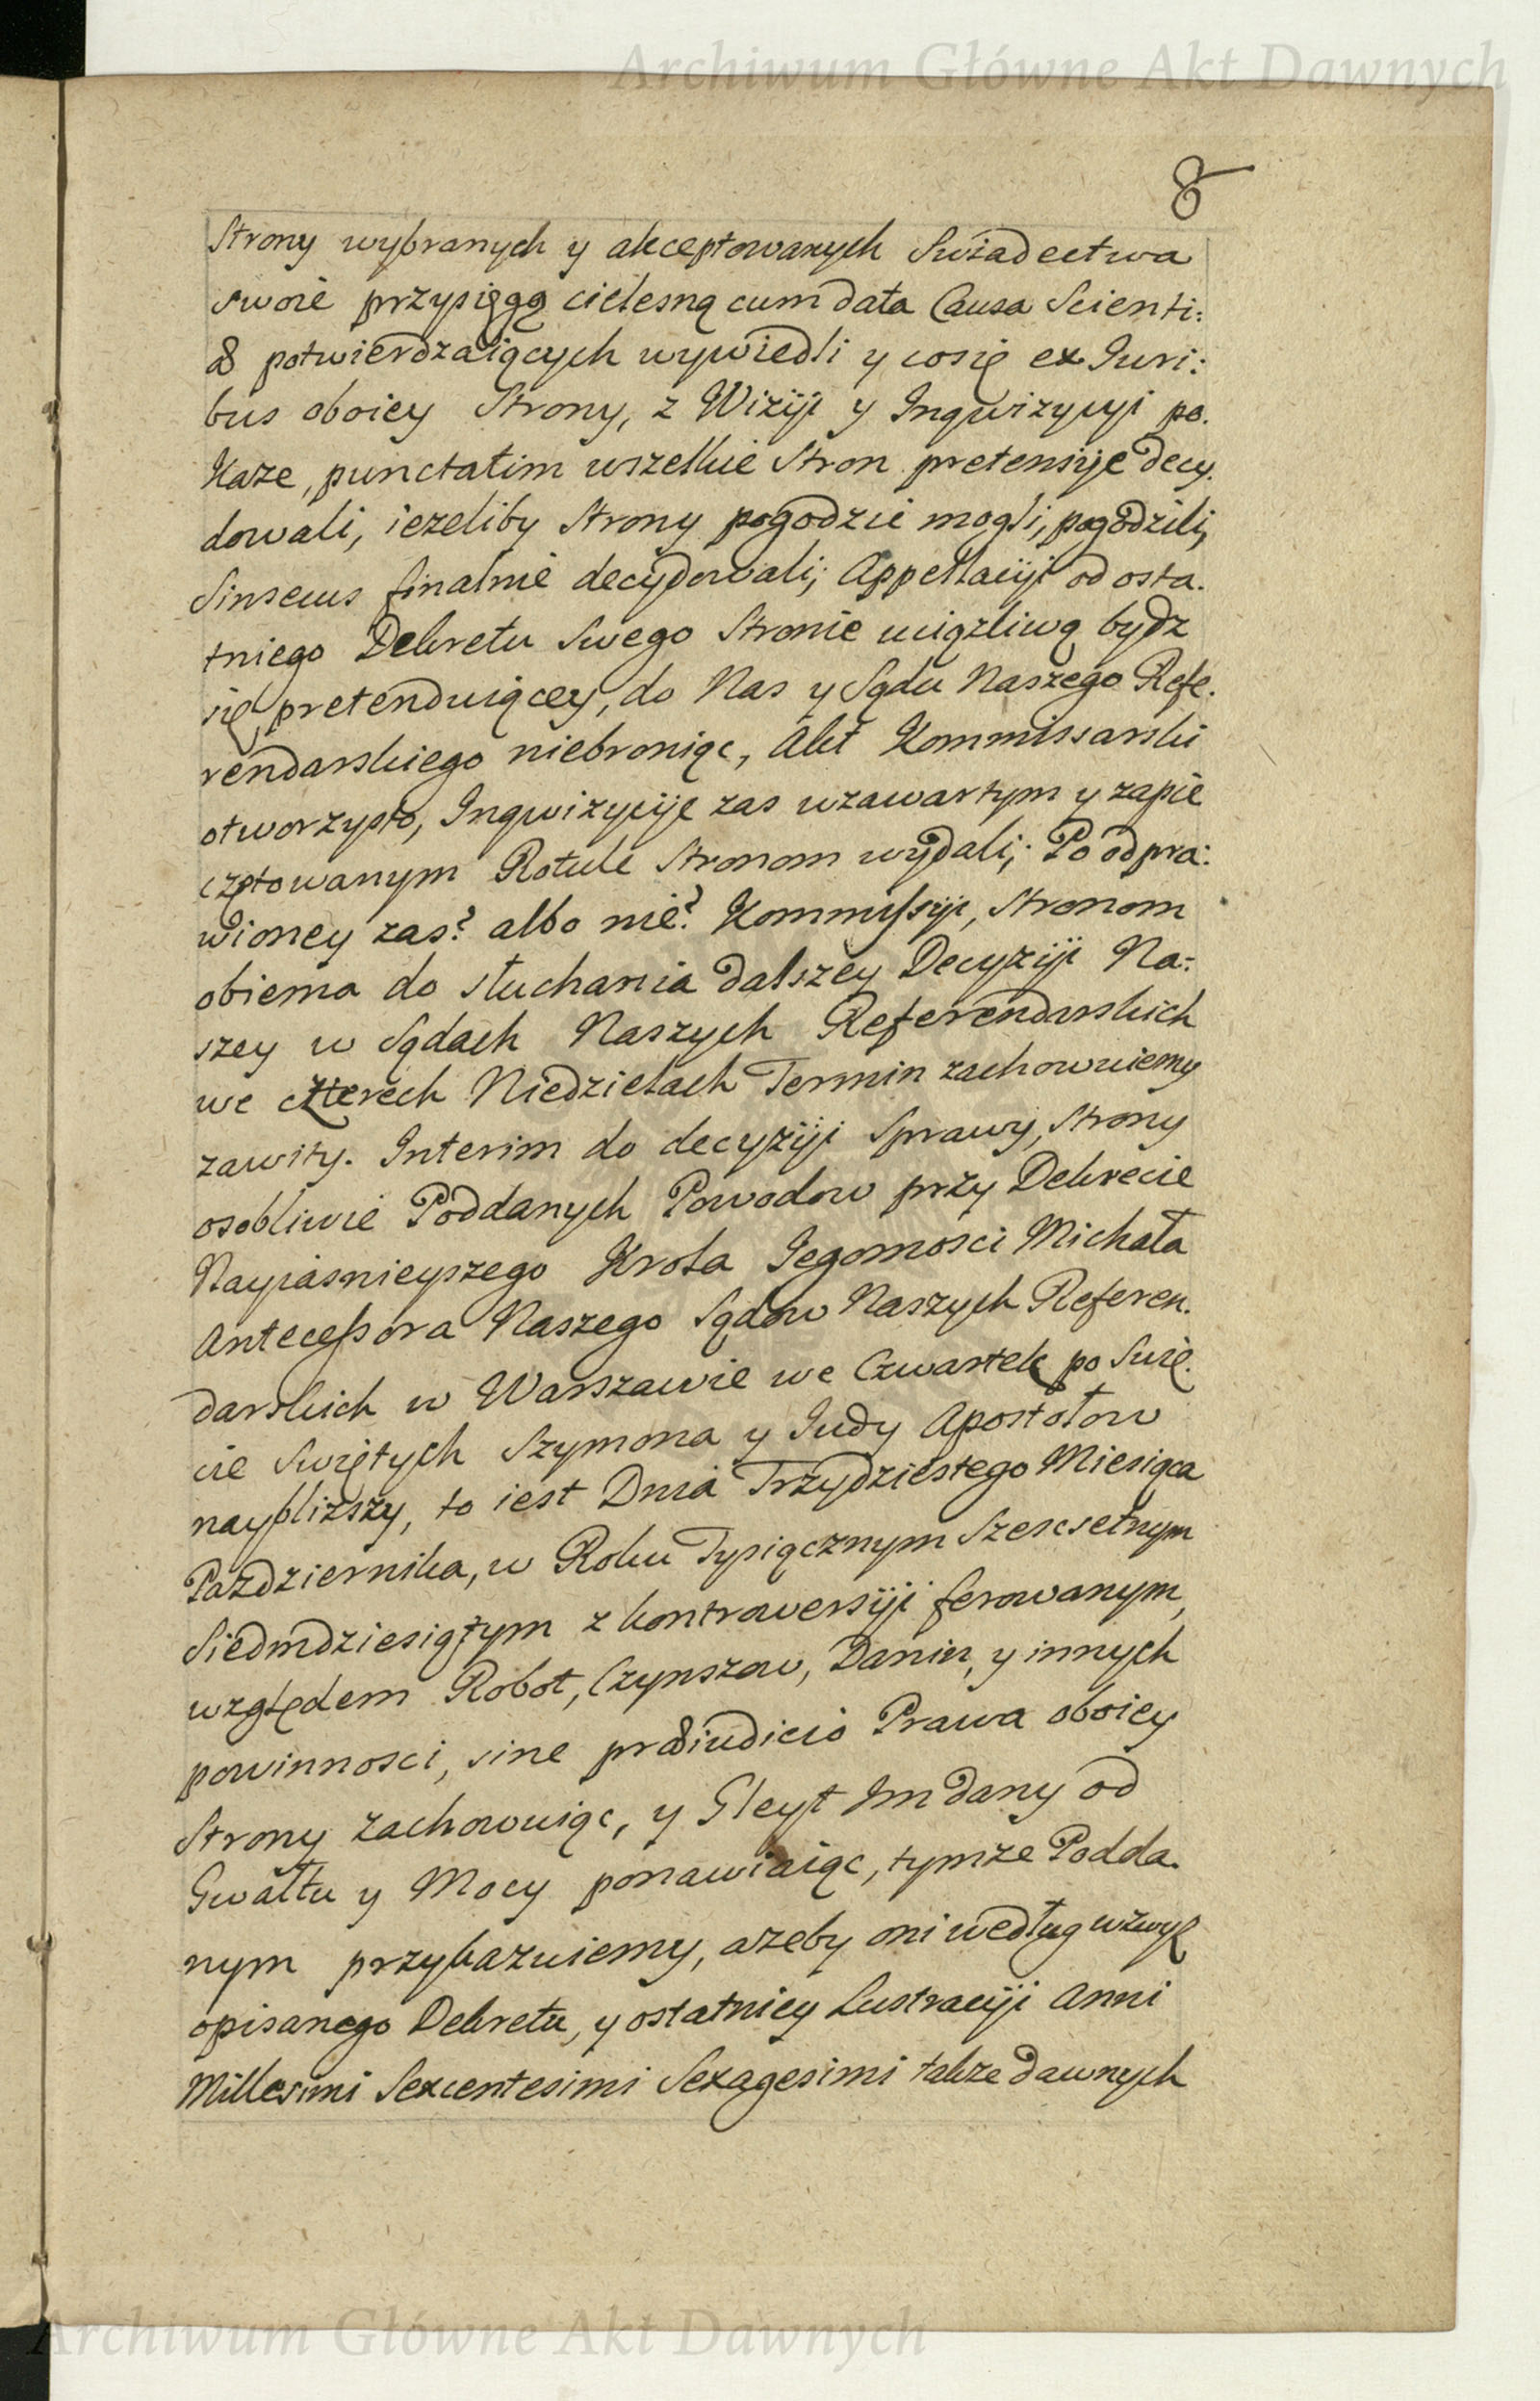 Archiwum Główne Akt Dawnych
8
Strony wybranych y akceptowanych Swiadectwa
swoie przysięgą cielesną cum data Causa Scienti:
æ potwierdzaiących wywiedli y cosię ex Juri:
bus oboiey Strony, z Wiziji y Inqwizycyi po.
Kaze, punctatim wszelkie Stron pretensyje decy.
dowali, iezeliby Strony pogodzic mogli, pogodzili,
Sinsecus finalnie decydowali; Appellaciji od osta.
tniego Dekretu Swego Stronie uciązliwą bydz
się pretenduiącey, do Nas y Sądu Naszego Refe.
rendarskiego niebroniąc, Akt Kommissarski
otworzysto, Inqwizycije zas wzawartym y zapie
czętowanym Rotule Stronom wydali; Po odpra:
wioney zas? albo nie? Kommissyi, Stronom
obiema do słuchania dalszey Decyziji Na:
szey w Sądach Naszych Referendarskich
we czterech Niedzielach Termin zachowuiemy
zawity. Interim do decyziji Sprawy, Strony
osobliwie Poddanych Powodow przy Dekrecie
Nayiasnieyszego Krola Jegomosci Michała
Antecessora Naszego Sądow Naszych Referen.
darskich w Warszawie we Czwartek po Swię.
cie Swiętych Szymona y Judy Apostołow
naybliższy, to iest Dnia Trzydziestego Miesiąca
Pazdziernika, w Roku Tysiącznym Szescsetnym
Siedmdziesiątym z kontrowersyji ferowanym,
względem Robot, Czynszow, Danin, y innych
powinnosci, sine præiudicio Prawa oboiey
Strony zachowuiąc, y Gleyt Im dany od
Gwałtu y Mocy ponawiaiąc, tymze Podda.
nym przykazuiemy, azeby oni według wzwyz
opisanego Dekretu, y ostatniey Lustraciji Anni
Millesimi Sexcentesimi Sexagesimi takze dawnych
Archiwum Główne Akt Dawnych